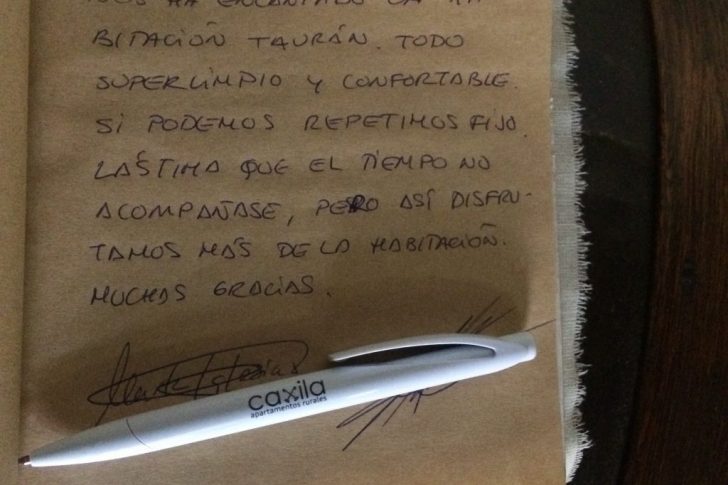 NOS HA ENCANTADO LA HA
BITACIOÑ TAURÁN. TODO
SUPERLIMPIO Y CONFORTABLE.
SI PODEMOS REPETIMOS FIJO.
LÁSTIMA QUE EL TIEMPO NO
ACOMPAÑASE, PERO ASÍ DISFRU-
TAMOS MÁS DE LA HABITACIOÑ.
MUCHAS GRACIAS.
Iglesias
caxila
apartamentos rurales